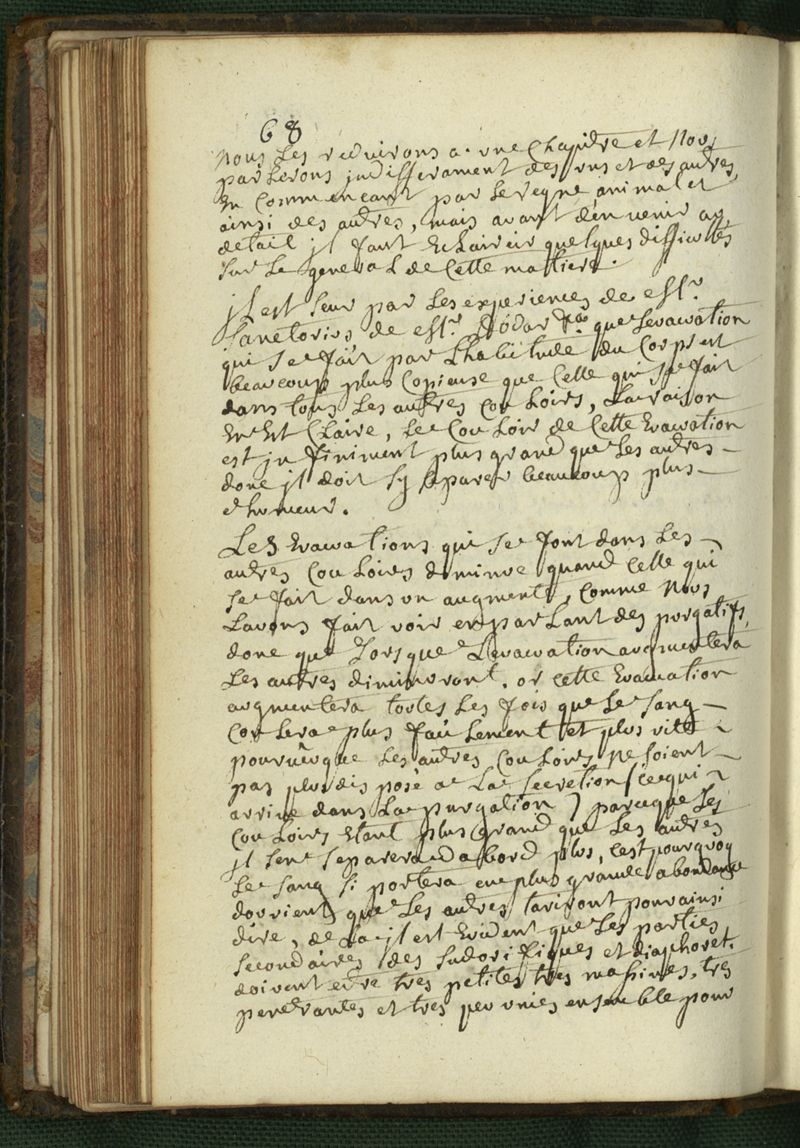 68
Nous Les reduirons a une Chapidre et Nous
parlerons jndifferament des uns et des autres,
En Commencant par Le regne animal et
ainsi des autres, mais avant d'en venir au
detail jl faut Eclaircir quelques difficultés
sur Le general de Cette matiere.
jl est seur par Les experiences de Mr
Sanctorius de Mr Dodar que Levacuation
qui se fait par Lhabitude du Corps est
beaucoup plus Copieuse que Celle qui se fait
dans tous Les autres Couloirs, La raison
En Est Claire, Le Couloir de Cette Evacuation
est jnfiniment plus grand que Les autres
donc jl doit sy separer beaucoup plus
dhumeur.
Les Evacuations qui se font dans Les
autres Couloirs diminue quand Celle qui
se fait dans un augmente, Comme Nous
Lavons fait voir en parlant des purgatifs,
donc que Lorsque Levacuation augmentera
Les autres diminuront. or Cette Evacuation
augmentera toutes Les fois que Le sang
Coulera plus facilement et plus vite
pourveuque Les autres Couloirs ne soient
pas plus disposé a La secretion (Cequi
arrive dans La purgation) parceque Les
Couloirs Etant plus grand que Les autres
jl sen separera dabord plus, Cest pourquoy
Le sang si portera en plus grande abondance
dou vient que Les autres tariront pour ainsi
dire, de La jl est Evident que Les parties
secondaires des sudorifiques et diaphoret.
doivent etre tres petites tres massives, tres
penetrantes et tres peu unies ensemble pour